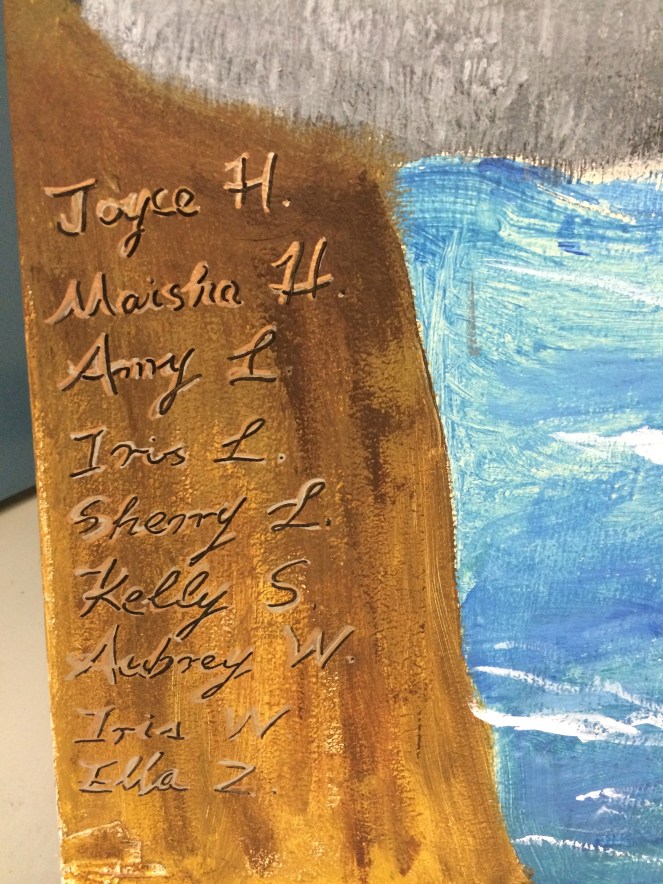 Joyce H.
Maisha H.
Amy L
Iris L.
Sherry L.
Kelly S.
Aubrey W.
Iris W
Ella Z.